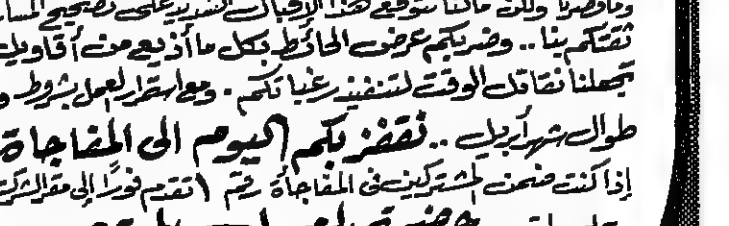 وما قصرنا ولكن ما كنا نتوقع هذا الإقبال الشديد على تصحيح
ثقتكم بنا .. وضربكم عرض الحائط بكل ما أذيع من أقاويل
تجعلنا نقاتل الوقت لتنفيذ رغباتكم . ومع استمرار العمل بشروط
طوال شهر أبريل .. نقفز بكم اليوم الى المفاجاة
إذا كنت ضمن المشتركين فى المفاجأة رقم ١ تقدم فورًا إلى مقر